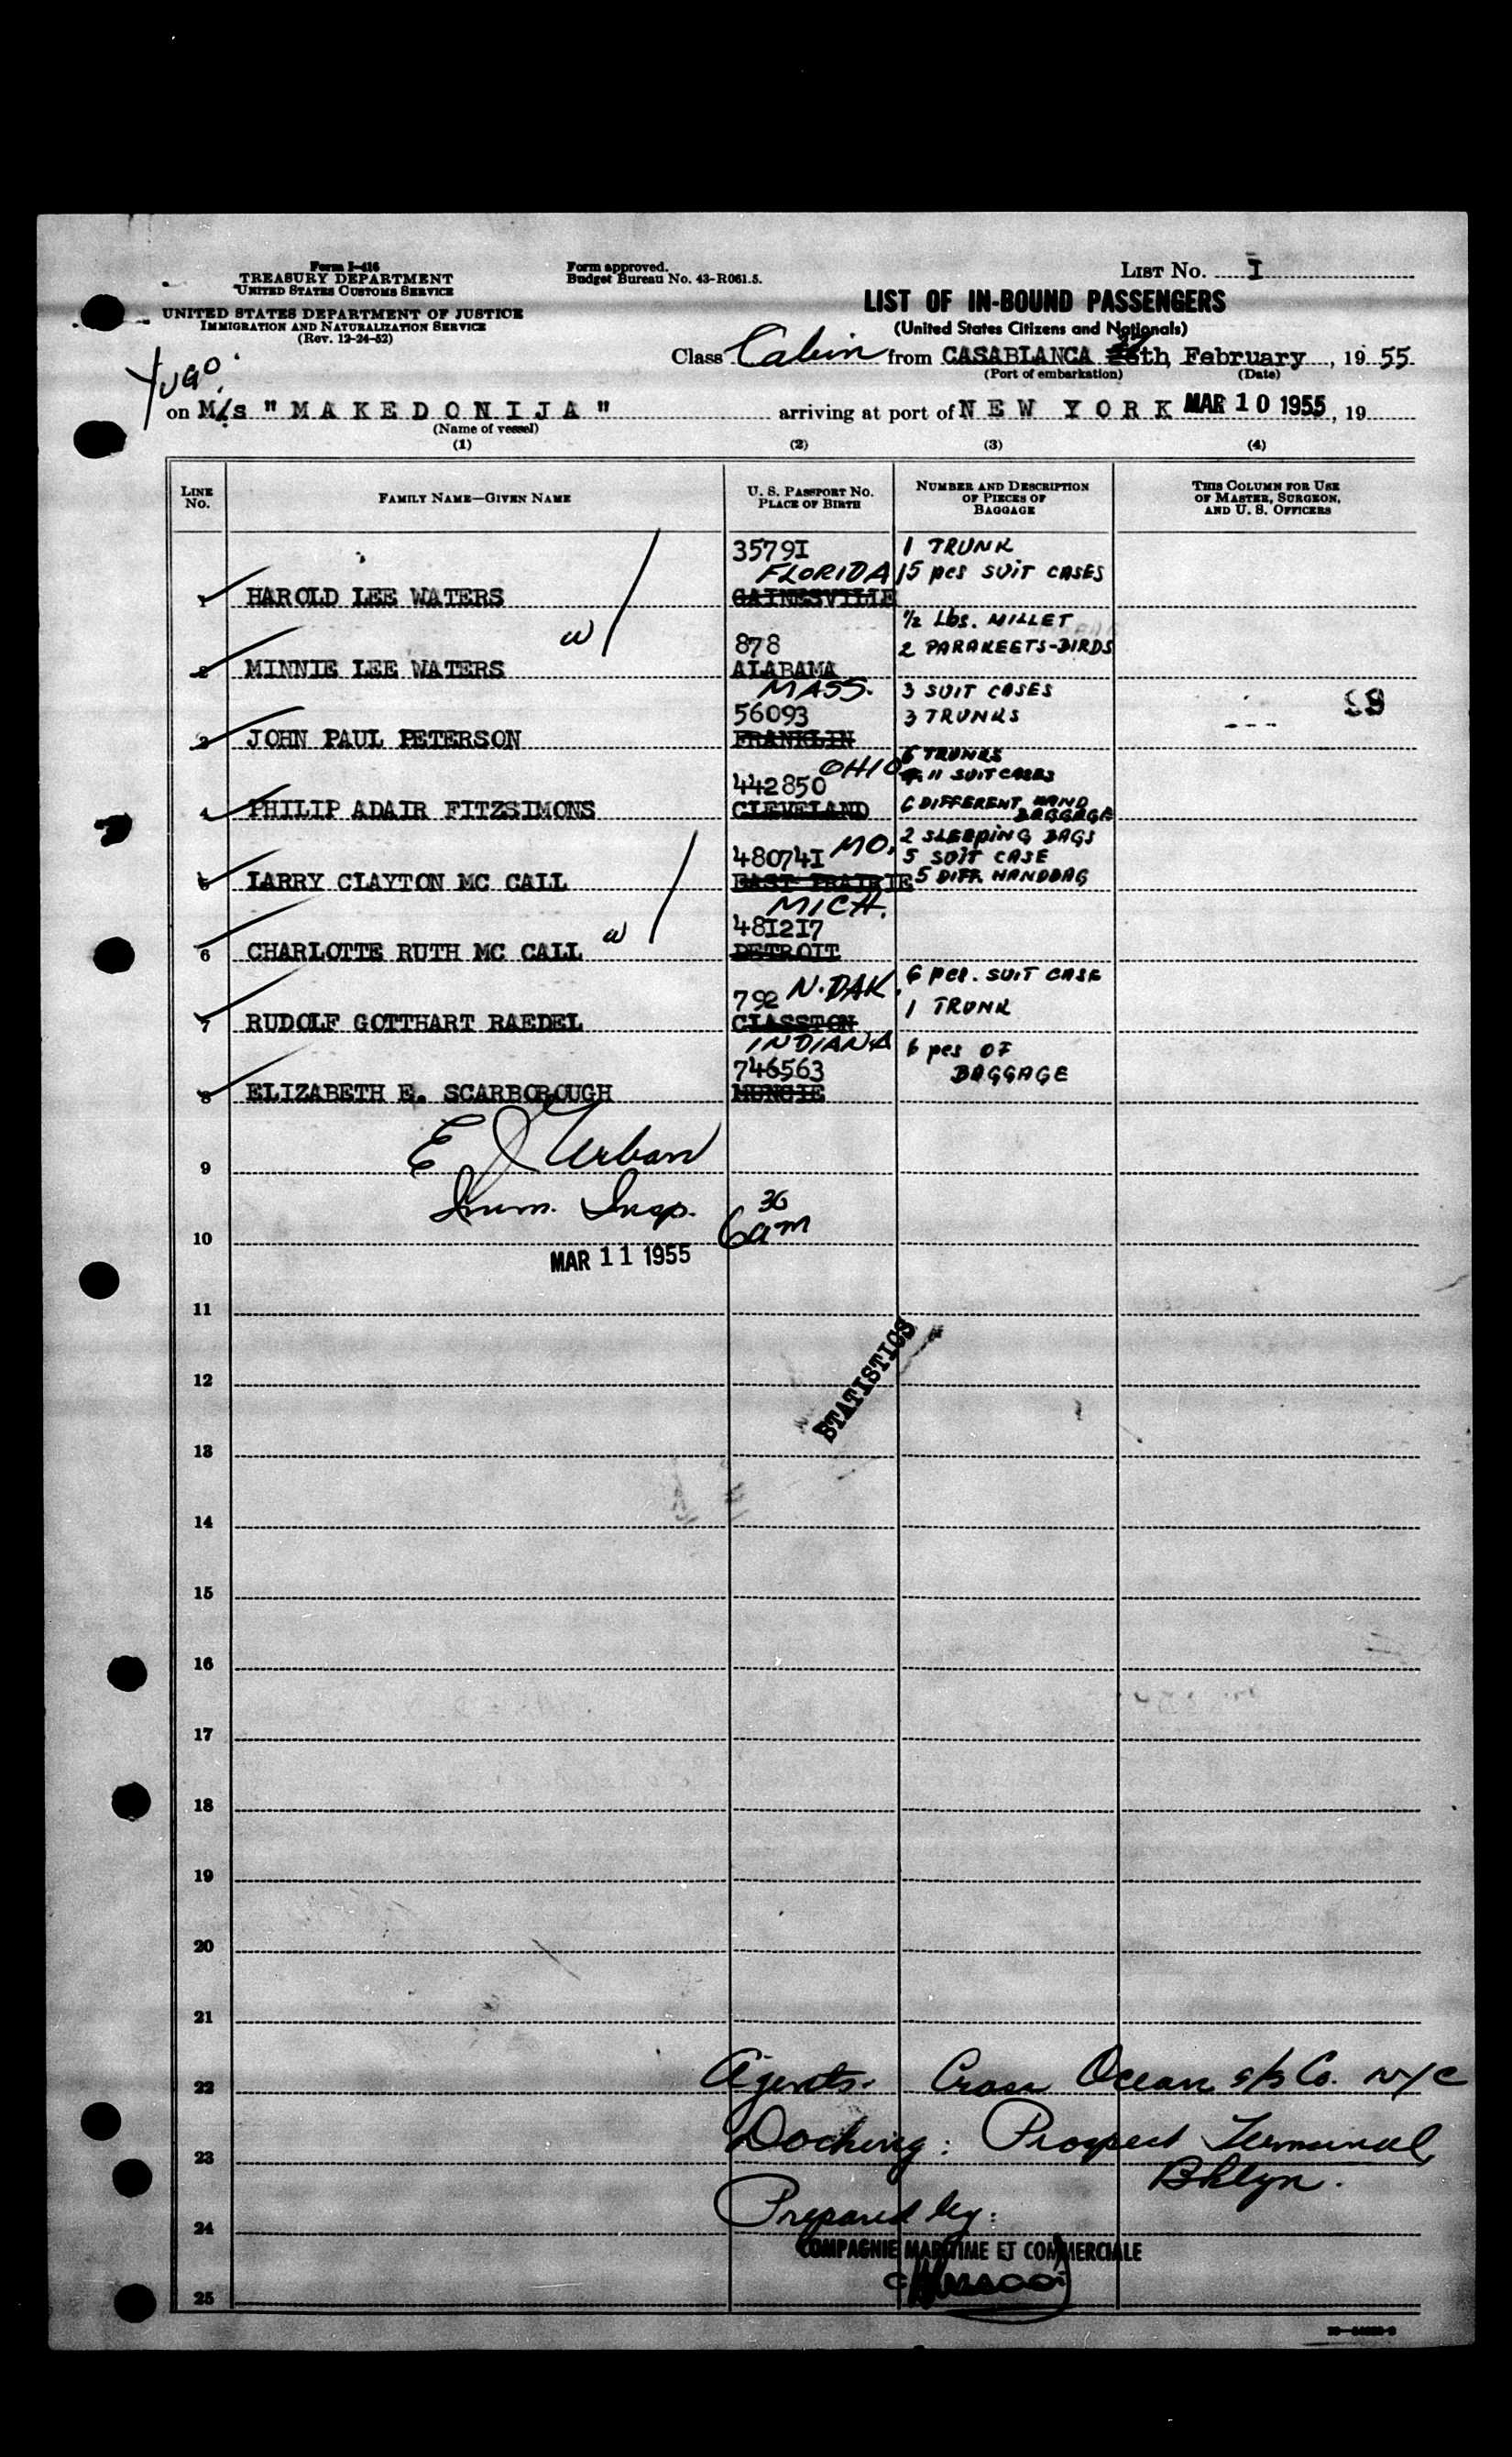 Form I-416
TREASURY DEPARTMENT
UNITED STATES CUSTOMS SERVICE
UNITED STATES DEPARTMENT OF JUSTICE
IMMIGRATION AND NATURALIZATION SERVICE
(Rev. 12-24-52)
Form approved.
Budget Bureau No. 43-R061.5.
LIST No. I
LIST OF IN-BOUND PASSENGERS
(United States Citizens and Nationals)
Class Cabin from CASABLANCA th February, 19 55
(Port of embarkation) (Date)
YUGO.
on M/s " M A K E D O N I J A " arriving at port of N E W Y O R K MAR 10 1955, 19
(Name of vessel)
(1) (2) (3) (4)
LINE No. FAMILY NAME—GIVEN NAME U. S. PASSPORT No. PLACE OF BIRTH NUMBER AND DESCRIPTION OF PIECES OF BAGGAGE THIS COLUMN FOR USE OF MASTER, SURGEON, AND U. S. OFFICERS
3579I 1 TRUNK
FLORIDA 15 pcs SUIT CASES
1 HAROLD LEE WATERS GAINESVILLE
1/2 Lbs. MILLET
w 878 2 PARAKEETS-BIRDS
2 MINNIE LEE WATERS ALABAMA
MASS. 3 SUIT CASES
56093 3 TRUNKS
3 JOHN PAUL PETERSON FRANKLIN
OHIO 6 TRUNKS
442850 11 SUITCASES
4 PHILIP ADAIR FITZSIMONS CLEVELAND 6 DIFFERENT HAND BAGGAGE
MO. 2 SLEEPING BAGS
48074I 5 SUIT CASE
5 LARRY CLAYTON MC CALL EAST PRAIRIE 5 DIFF. HANDBAG
MICH.
48I2I7
6 CHARLOTTE RUTH MC CALL w DETROIT
792 N.DAK. 6 pcs. SUIT CASE
1 TRUNK
7 RUDOLF GOTTHART RAEDEL CLASSTON
INDIANA 6 pcs OF
746563 BAGGAGE
8 ELIZABETH E. SCARBOROUGH MUNCIE
E J Urban
9
Imm. Insp. 6 30 am
10
MAR 11 1955
11
STATISTICS
12
13
14
15
16
17
18
19
20
21
22 Agents. Cross Ocean s/s Co. NYC
23 Docking: Prospect Terminal,
Bklyn.
24 Prepared by:
COMPAGNIE MARITIME ET COMMERCIALE
25